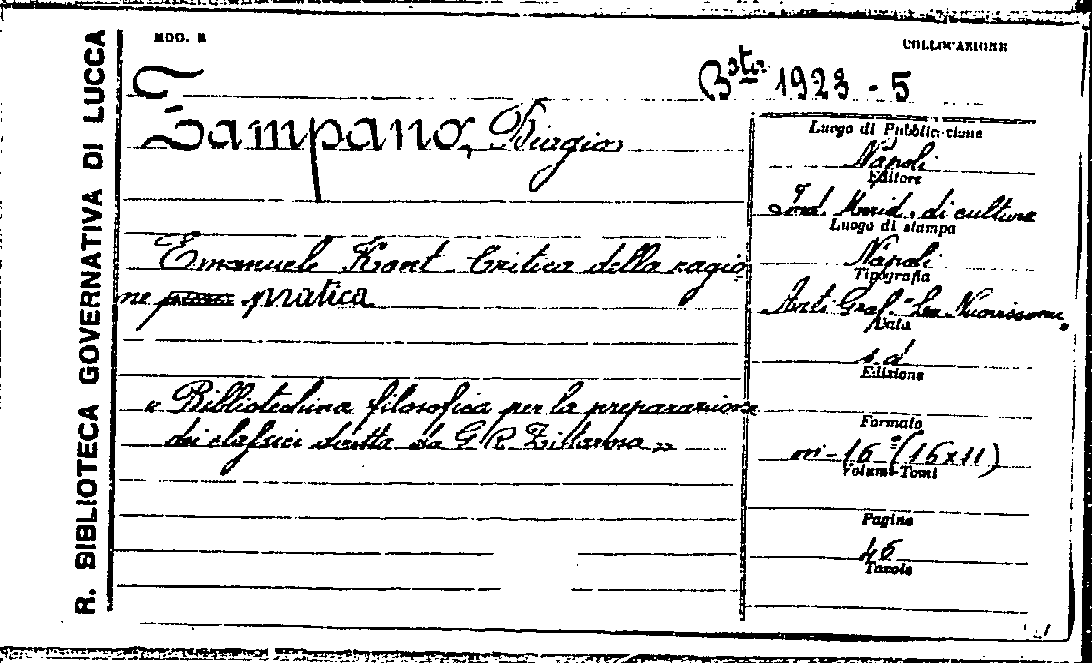 R. BIBLIOTECA GOVERNATIVA DI LUCCA
MOD. R
COLLOCAZIONE
Bta 1923 - 5
Zampano, Biagio
Emanuele Kant Critica della ragio
ne pratica
« Bibliotechina filosofica per la preparazione
dei classici diretta da G. P. Zittarosa »
Luogo di Pubblicazione
Napoli
Editore
Ind. Merid. di cultura
Luogo di stampa
Napoli
Tipografia
Arti Graf. "La Nuovissima"
Data
s. d.
Edizione
Formato
in-16° (16x11)
Volumi-Tomi
Pagine
46
Tavole